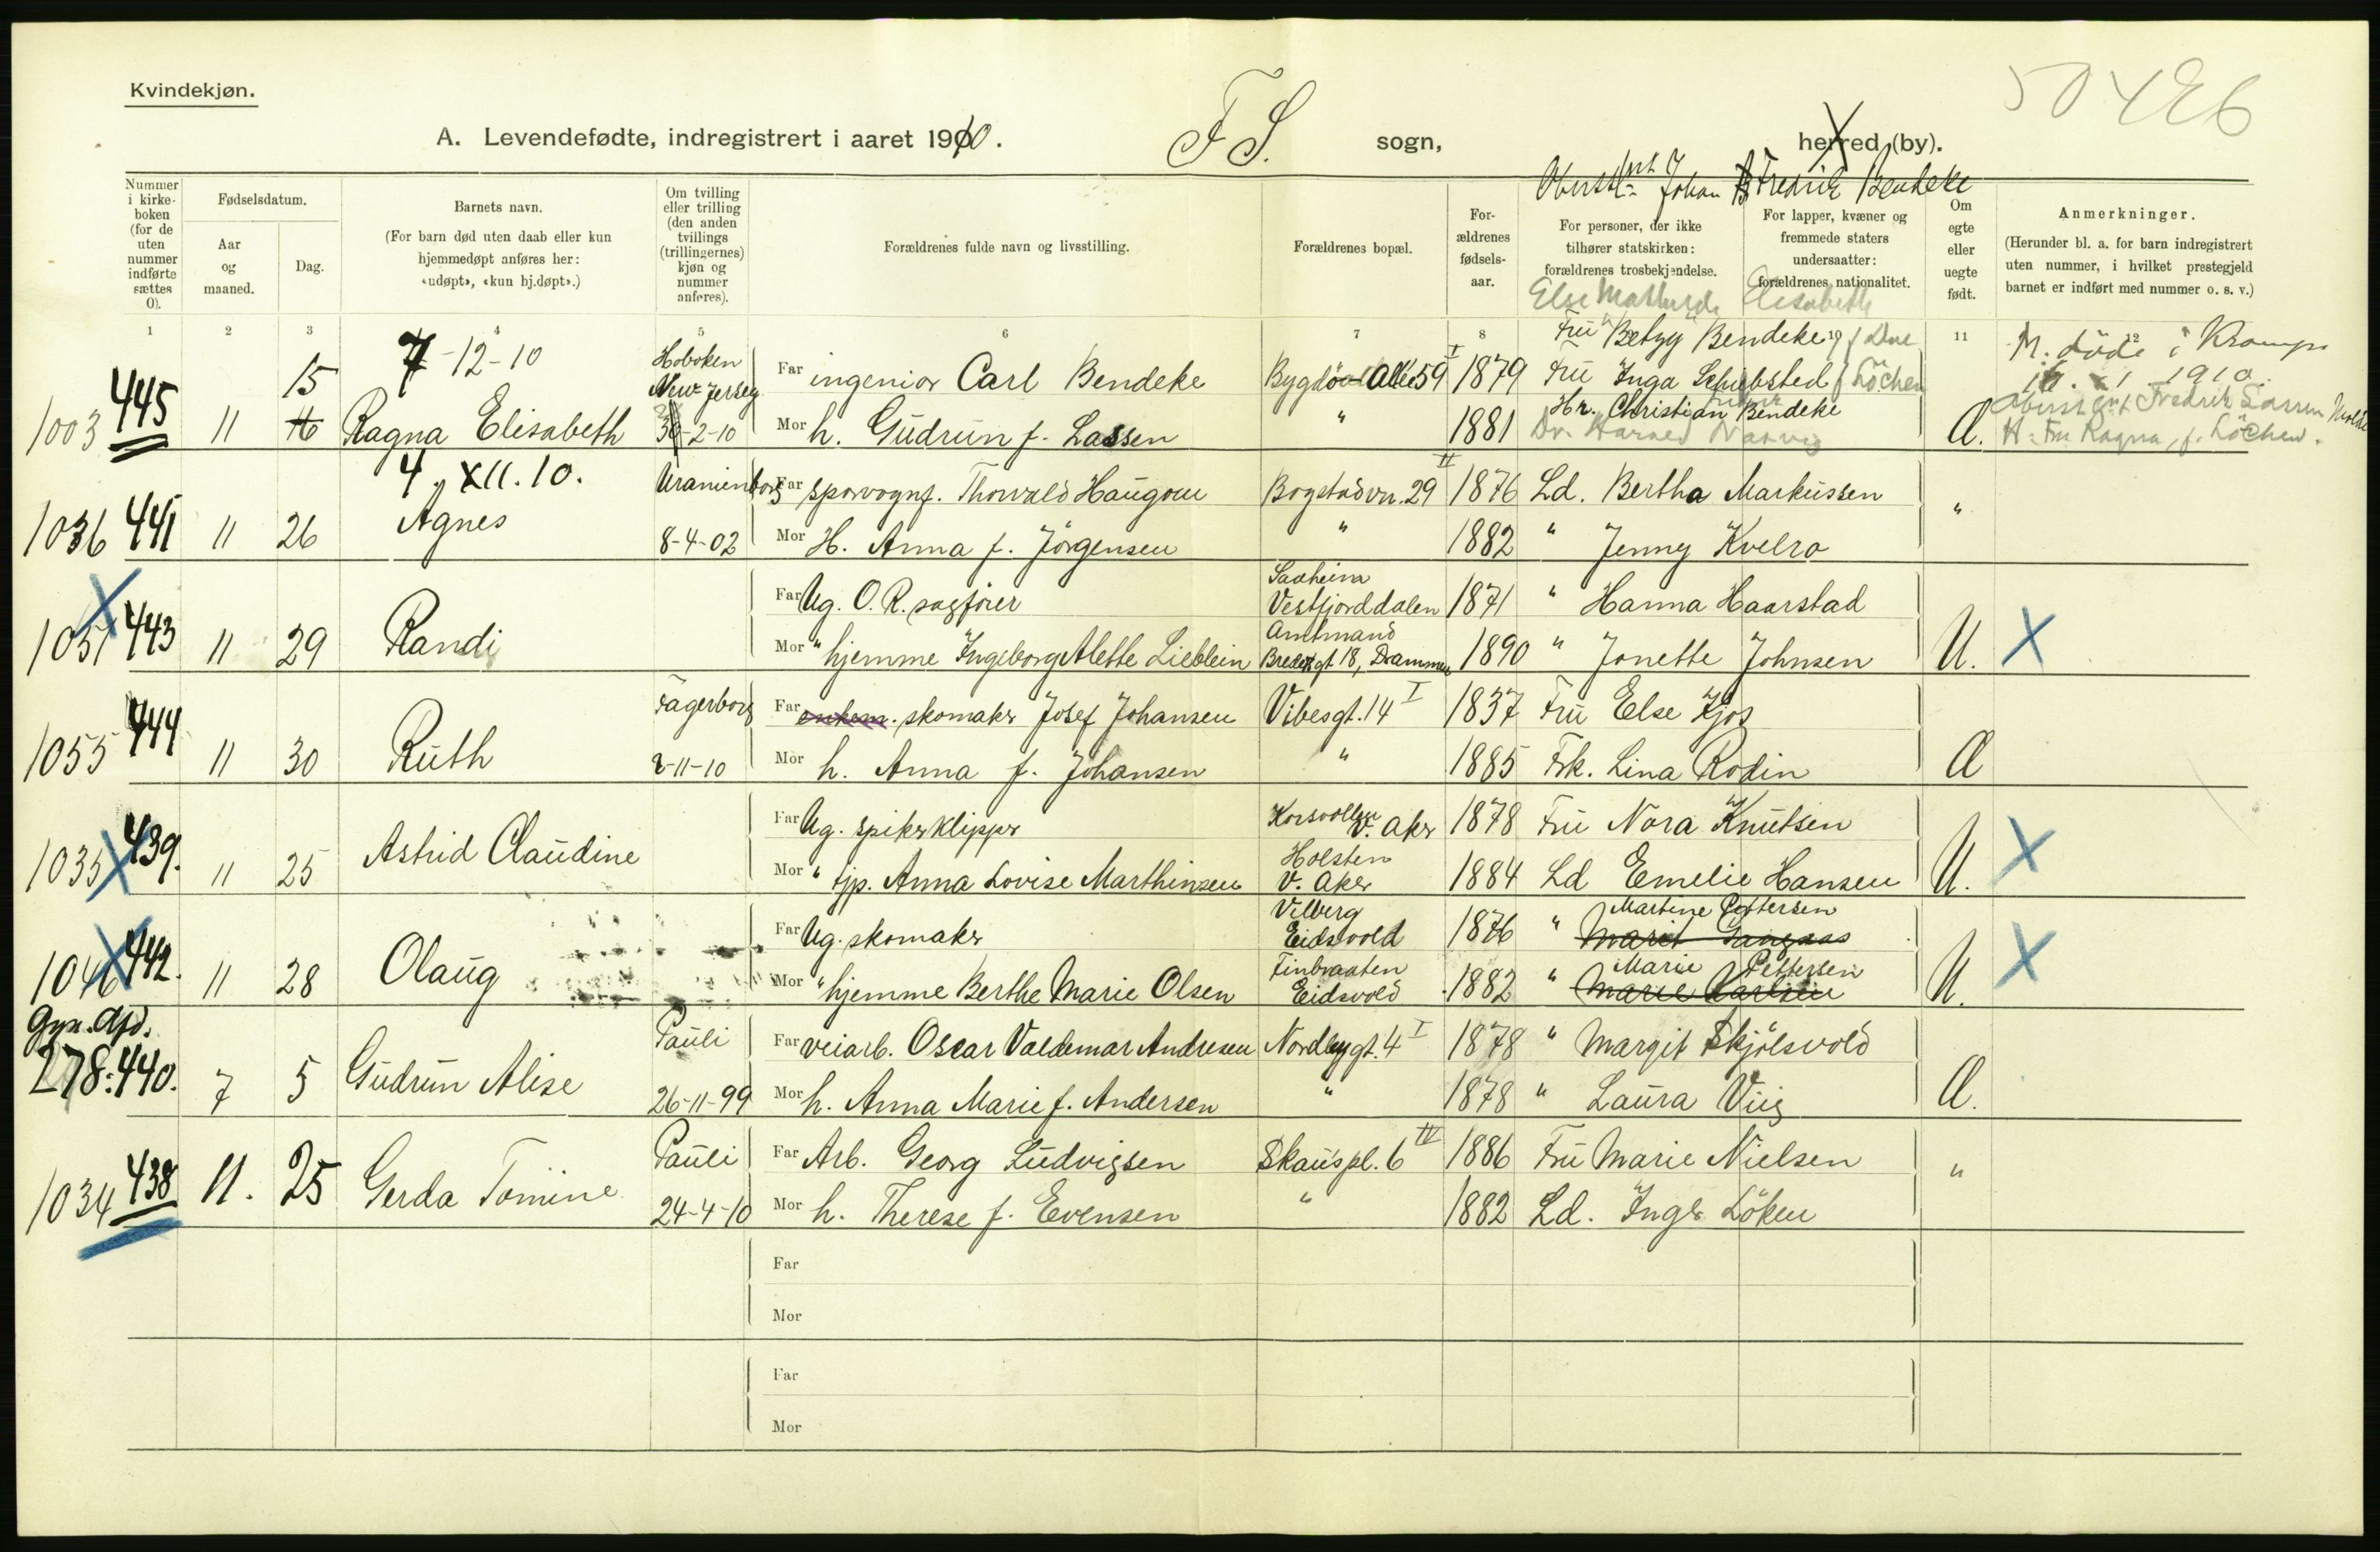 Kvindekjøn.
50426
A. Levendefødte, indregistrert i aaret 1910.
F S. sogn,
herred (by).
Oberstl. Johan Fredrik Bendeke
Nummer i kirkeboken (for de uten nummer indførte sættes 0).
Fødselsdatum.
Aar og maaned.
Dag.
Barnets navn.
(For barn død uten daab eller kun hjemmedøpt anføres her: «udøpt», «kun hj.døpt».)
Om tvilling eller trilling (den anden tvillings (trillingernes) kjøn og nummer anføres).
Forældrenes fulde navn og livsstilling.
Forældrenes bopæl.
Forældrenes fødselsaar.
For personer, der ikke tilhører statskirken: forældrenes trosbekjendelse.
For lapper, kvæner og fremmede staters undersaatter: forældrenes nationalitet.
Om egte eller uegte født.
Anmerkninger.
(Herunder bl. a. for barn indregistrert uten nummer, i hvilket prestegjeld barnet er indført med nummer o. s. v.)
Else Mathilde Elisabeth
1 2 3 4 5 6 7 8 10 11 12
Fru "Betzy" Bendeke f. Due
7-12-10 Hoboken New Jersey
15 Far ingeniør Carl Bendeke Bygdø Allé 59 I 1879 Fru Inga Schibsted f. Løchen
M. døde i Kramper
1910.
1003 445 11 16 Ragna Elisabeth 30-2-10 Mor h. Gudrun f. Lassen " 1881 Hr. Christian Bendeke
Dr. Harald Natvig A.
Oberstl. Fredrik Lassen Molde
H. Fru Ragna, f. Løchen.
4. XII. 10. Uranienborg Far sporvognf. Thorvald Haugom Bogstadvn. 29 II 1876 Ld. Bertha Markussen
1036 441 11 26 Agnes 8-4-02 Mor H. Anna f. Jørgensen " 1882 " Jenny Kvelro "
Far Ug. O.R. sagfører Saaheim Vestfjorddalen 1871 " Hanna Haarstad
1051 443 11 29 Randi Mor " hjemme Ingeborg Alette Lieblein Amtmand Bredesgt. 18, Drammen 1890 " Jonette Johnsen U. X
Fagerborg Far skomaker Josef Johansen Vibesgt. 14 I 1837 Fru Else Kjos
1055 444 11 30 Ruth 2-11-10 Mor h. Anna f. Johansen " 1885 Frk. Lina Rodin A
Far Ug. spikerklipper Korsvollen V. Aker 1878 Fru Nora Knutsen
1035 439. 11 25 Astrid Claudine Mor " tjp. Anna Lovise Marthinsen Holsten V. Aker 1884 Ld Emelie Hansen U. X
Far Ug. skomaker Vilberg Eidsvold 1876 " Martine Pettersen
Marit Gangsaas
1046 442. 11 28 Olaug Mor " hjemme Berthe Marie Olsen Finbraaten Eidsvold 1882 " Marie Pettersen
Marie Karlsen U. X
Gyn. Afd. Pauli Far veiarb. Oscar Valdemar Andresen Nordbygt. 4 I 1878 " Margit Skjølsvold
278: 440. 7 5 Gudrun Alise 26-11-99 Mor h. Anna Marie f. Andersen " 1878 " Laura Viig A.
Pauli Far Arb. Georg Ludvigsen Skauspl. 6 IV 1886 Fru Marie Nielsen
1034 438 11. 25 Gerda Tomine 24-4-10 Mor h. Therese f. Evensen " 1882 Ld. Inger Løken "
Far
Mor
Far
Mor